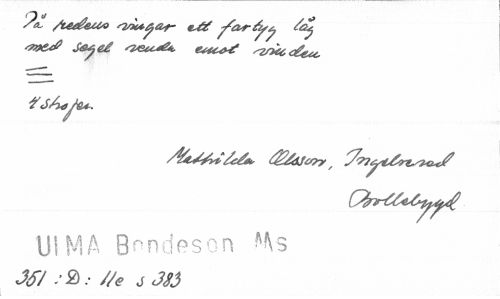 På redens vingar ett fartyg låg
med segel vända emot vinden
4 strofer.
Mathilda Olsson, Ingelsered
Bollebygd
ULMA Bondeson Ms
351 : D : 11e s 383